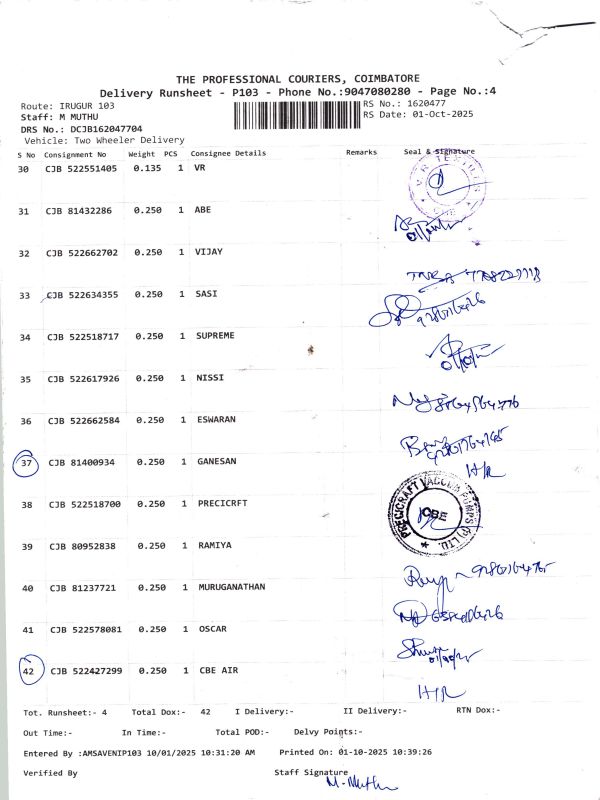 THE PROFESSIONAL COURIERS, COIMBATORE
Delivery Runsheet - P103 - Phone No.:9047080280 - Page No.:4
Route: IRUGUR 103
RS No.: 1620477
Staff: M MUTHU
RS Date: 01-Oct-2025
DRS No.: DCJB162047704
Vehicle: Two Wheeler Delivery
S No Consignment No Weight PCS Consignee Details Remarks Seal & Signature
30 CJB 522551405 0.135 1 VR
31 CJB 81432286 0.250 1 ABE
32 CJB 522662702 0.250 1 VIJAY
33 CJB 522634355 0.250 1 SASI
34 CJB 522518717 0.250 1 SUPREME
35 CJB 522617926 0.250 1 NISSI
36 CJB 522662584 0.250 1 ESWARAN
37 CJB 81400934 0.250 1 GANESAN H/R
38 CJB 522518700 0.250 1 PRECICRFT
PRECICRAFT VACCUM PUMPS (P) LTD.
CBE
39 CJB 80952838 0.250 1 RAMIYA
40 CJB 81237721 0.250 1 MURUGANATHAN
41 CJB 522578081 0.250 1 OSCAR
42 CJB 522427299 0.250 1 CBE AIR H/R
Tot. Runsheet:- 4 Total Dox:- 42 I Delivery:- II Delivery:- RTN Dox:-
Out Time:- In Time:- Total POD:- Delvy Points:-
Entered By :AMSAVENIP103 10/01/2025 10:31:20 AM Printed On: 01-10-2025 10:39:26
Verified By Staff Signature
M. Muthu